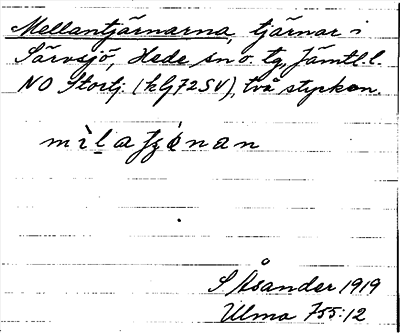 Mellantjärnarna, tjärnar i
Särvsjö, Hede sn o. tg, Jämtl. l.
NO Stortj. (kG72SV), två stycken.
S Åsander 1919
Ulma 755:12